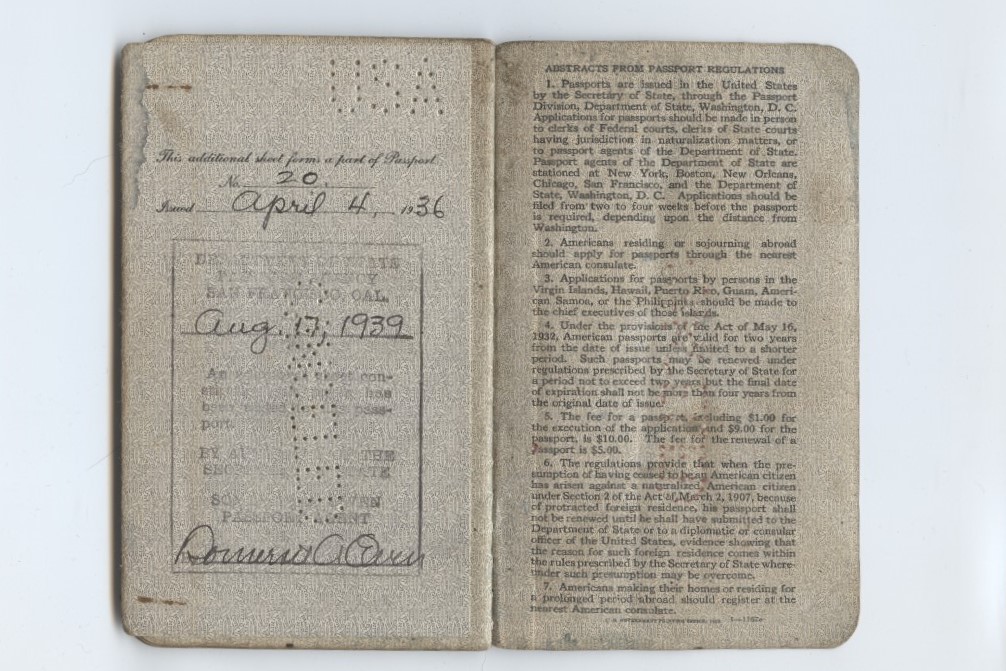 USA
This additional sheet forms a part of Passport
No. 20.
Issued April 4, 1936
DEPARTMENT OF STATE
SAN FRANCISCO, CAL.
Aug. 17, 1939
port.
PASSPORT AGENT
ABSTRACTS FROM PASSPORT REGULATIONS
1. Passports are issued in the United States
by the Secretary of State, through the Passport
Division, Department of State, Washington, D. C.
Applications for passports should be made in person
to clerks of Federal courts, clerks of State courts
having jurisdiction in naturalization matters, or
to passport agents of the Department of State.
Passport agents of the Department of State are
stationed at New York, Boston, New Orleans,
Chicago, San Francisco, and the Department of
State, Washington, D. C. Applications should be
filed from two to four weeks before the passport
is required, depending upon the distance from
Washington.
2. Americans residing or sojourning abroad
should apply for passports through the nearest
American consulate.
3. Applications for passports by persons in the
Virgin Islands, Hawaii, Puerto Rico, Guam, Ameri-
can Samoa, or the Philippines should be made to
the chief executives of those islands.
4. Under the provisions of the Act of May 16,
1932, American passports are valid for two years
from the date of issue unless limited to a shorter
period. Such passports may be renewed under
regulations prescribed by the Secretary of State for
a period not to exceed two years but the final date
of expiration shall not be more than four years from
the original date of issue.
5. The fee for a passport, including $1.00 for
the execution of the application and $9.00 for the
passport, is $10.00. The fee for the renewal of a
passport is $5.00.
6. The regulations provide that when the pre-
sumption of having ceased to be an American citizen
has arisen against a naturalized American citizen
under Section 2 of the Act of March 2, 1907, because
of protracted foreign residence, his passport shall
not be renewed until he shall have submitted to the
Department of State or to a diplomatic or consular
officer of the United States, evidence showing that
the reason for such foreign residence comes within
the rules prescribed by the Secretary of State where-
under such presumption may be overcome.
7. Americans making their homes or residing for
a prolonged period abroad should register at the
nearest American consulate.
U. S. GOVERNMENT PRINTING OFFICE